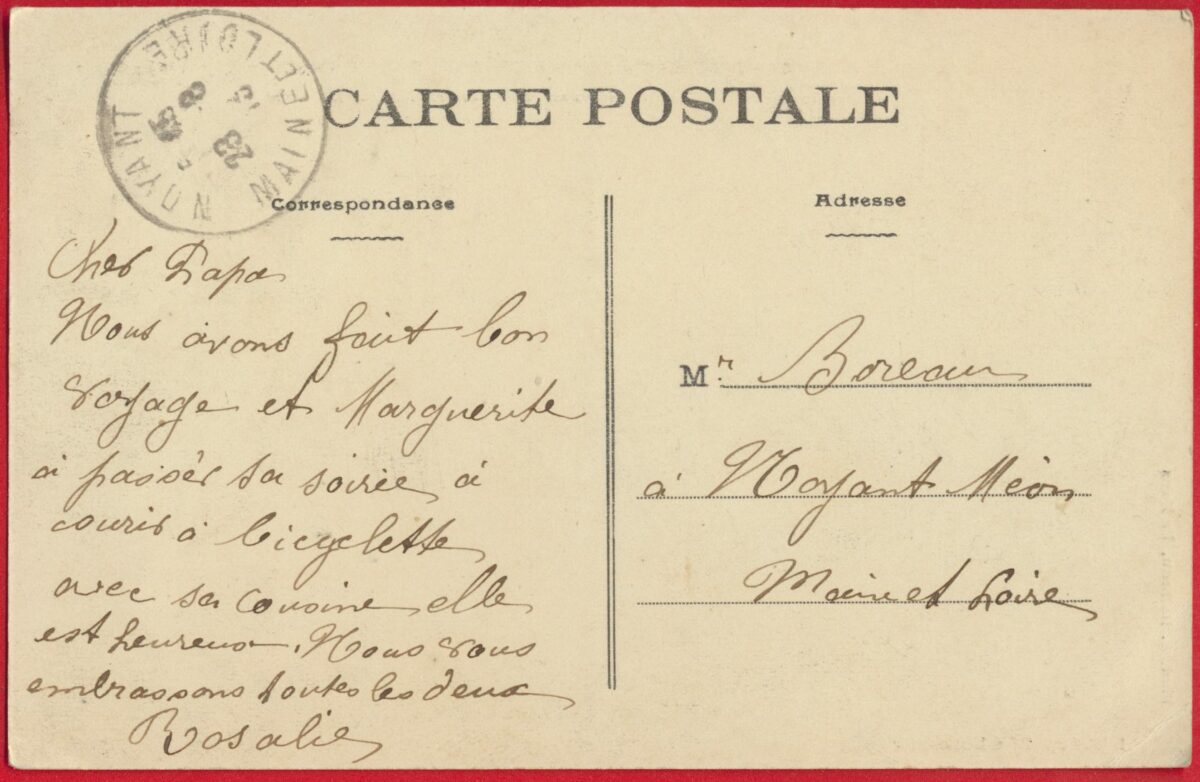 CARTE POSTALE
NOYANT
MAINE ET LOIRE
23
Correspondance
Cher Papa
Nous avons fait bon
voyage et Marguerite
à passér sa soirée à
courir à bicyclette
avec sa cousine elle
est heureux. Nous vous
embrassons toutes les deux
Rosalie
Adresse
Mr Boreau
à Noyant Méon
Maine et Loire